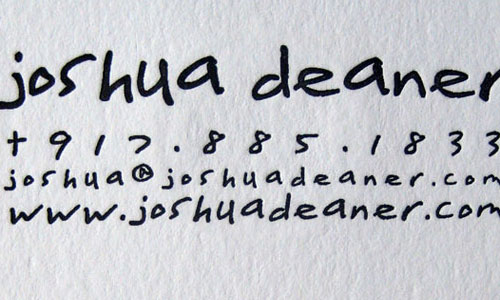 joshua deaner
+917.885.1833
joshua@joshuadeaner.com
www.joshuadeaner.com